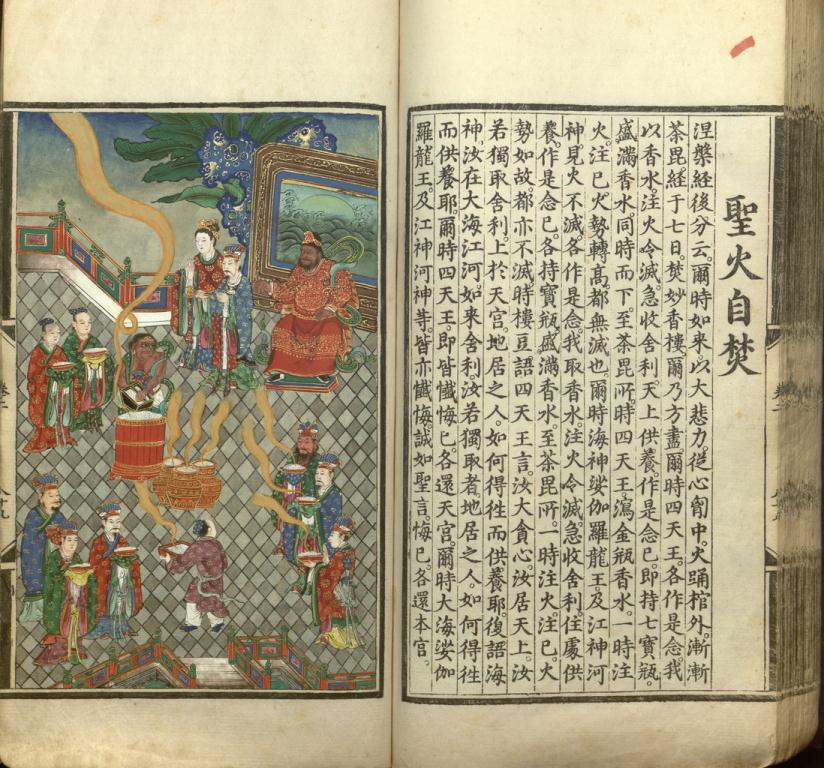 聖火自焚
涅槃經後分云。爾時如來。以大悲力。從心胷中。火踊棺外。漸漸
荼毘。經于七日。焚妙香樓。爾乃方盡。爾時四天王。各作是念。我
以香水。注火令滅。急收舍利。天上供養。作是念已。即持七寶瓶。
盛滿香水。同時而下。至荼毘所。時四天王。瀉金瓶香水。一時注
火。注已。火勢轉髙。都無滅也。爾時海神娑伽羅龍王。及江神河
神。見火不滅。各作是念。我取香水。注火令滅。急收舍利。住處供
養。作是念已。各持寶瓶。盛滿香水。至荼毘所。一時注火。注已。火
勢如故。都亦不滅。時樓豆語四天王言。汝大貪心。汝居天上。汝
若獨取舍利。上於天宮。地居之人。如何得徃而供養耶。復語海
神。汝在大海江河。如來舍利。汝若獨取者。地居之人。如何得徃
而供養耶。爾時四天王。即皆懺悔。已。各還天宮。爾時大海娑伽
羅龍王。及江神河神等。皆亦懺悔。誠如聖言。悔已。各還本宮。